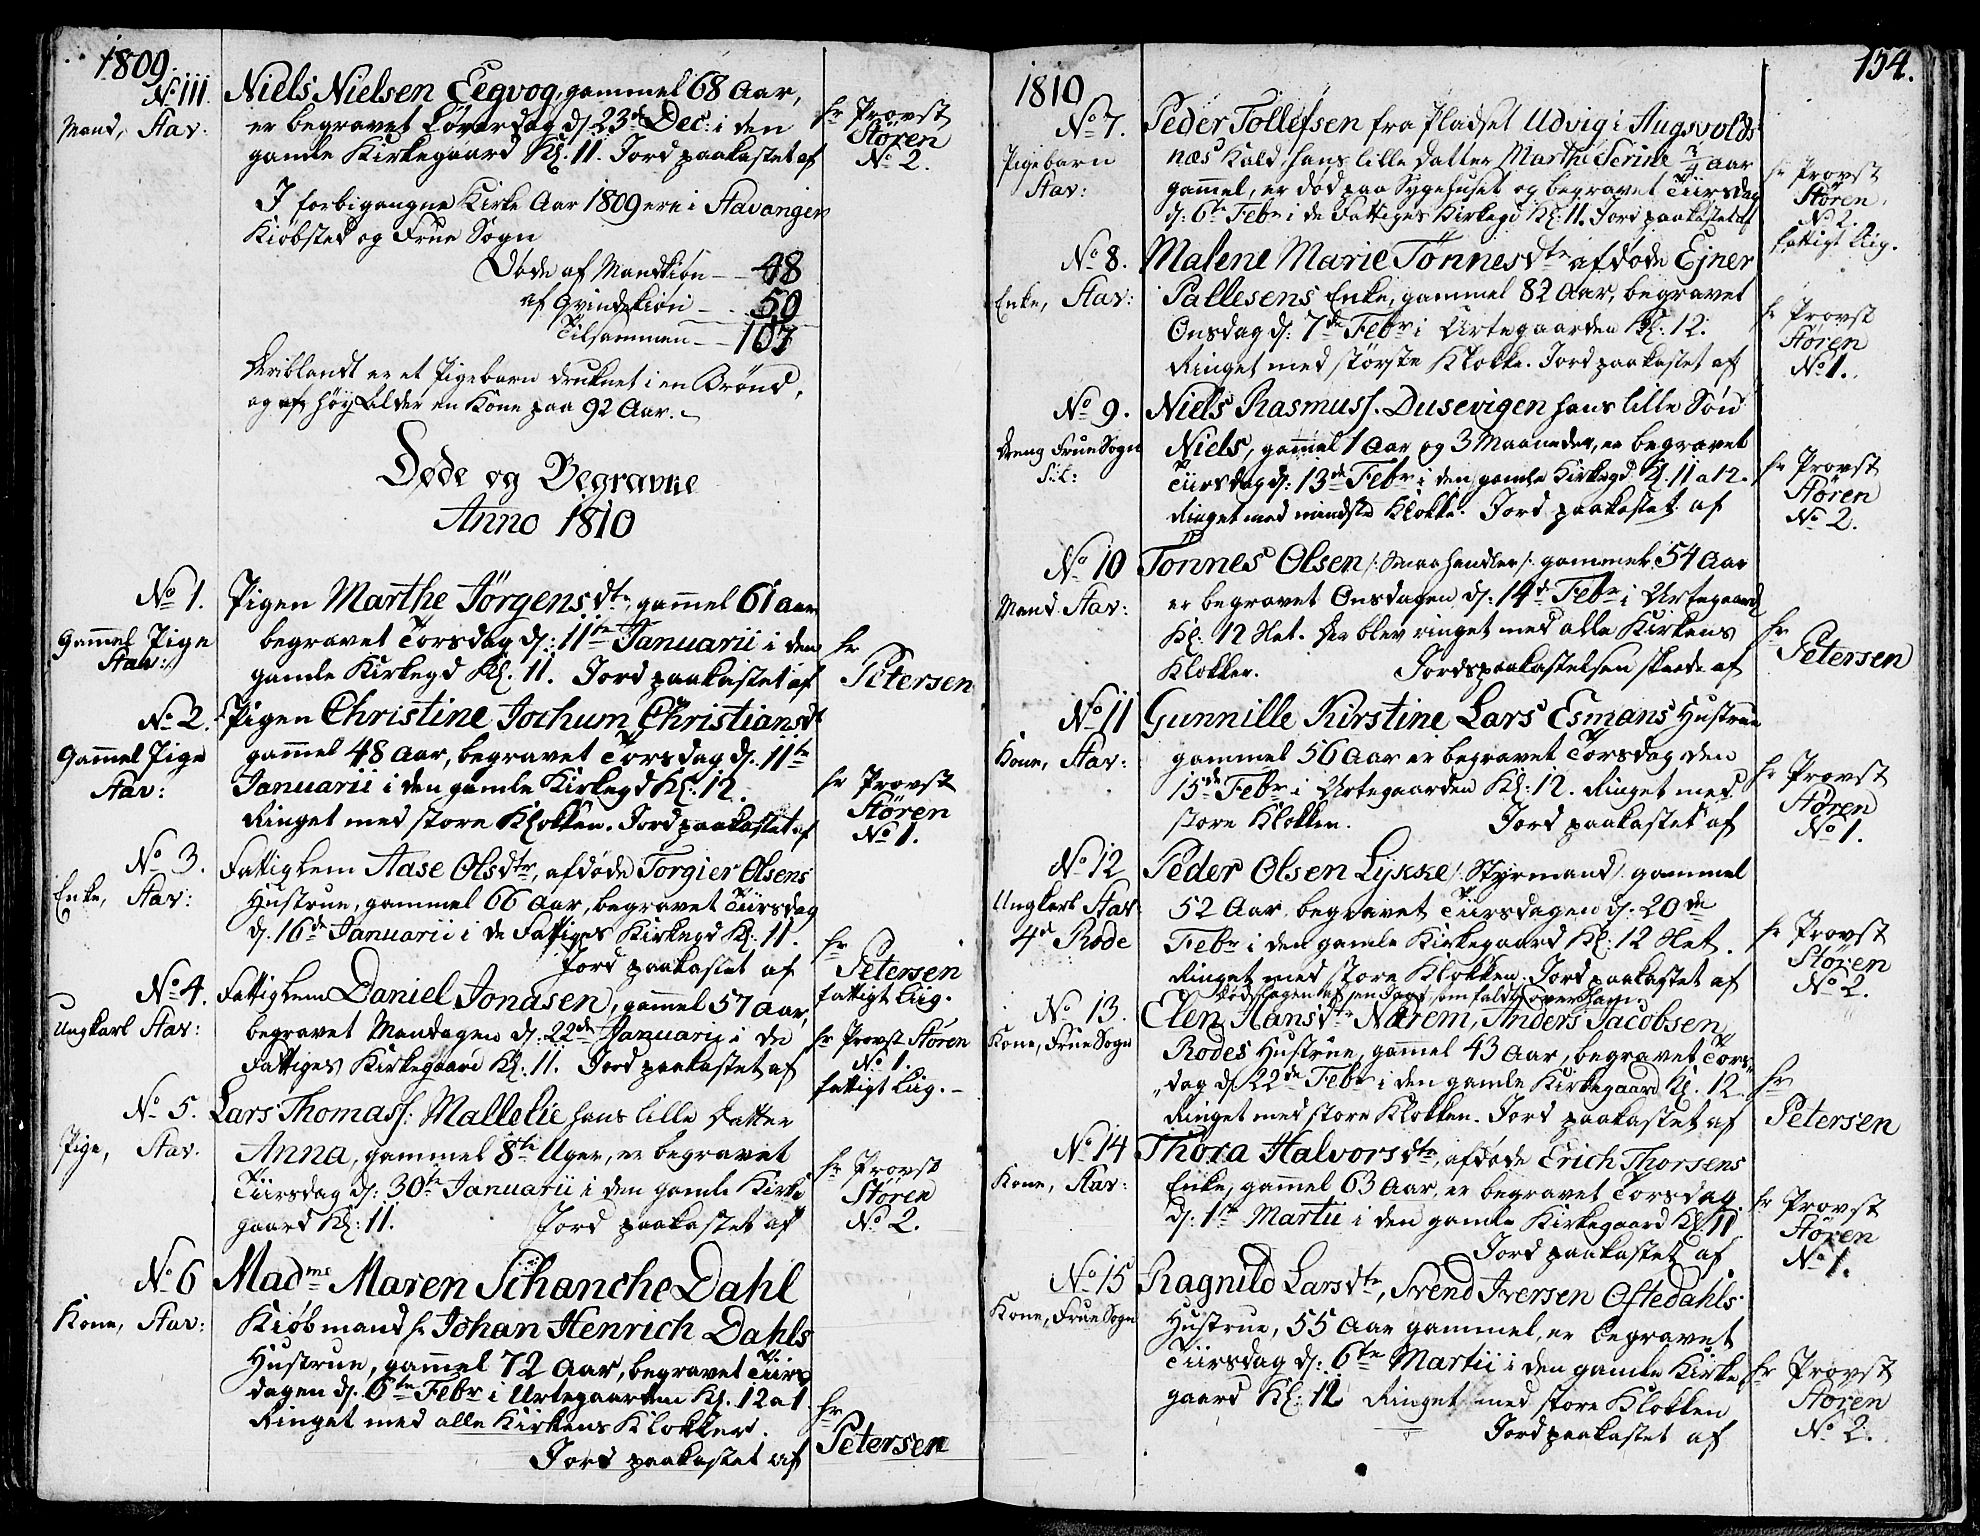 1809.
No 111.
Mand, Stav:
Niels Nielsen Eegvog, gammel 68 Aar,
er begravet Löverdag d. 23de Dec: i den
gamle Kirkegaard Kl. 11. Jord paakastet af
hr Provst
Stören
No 2.
I forbigangne Kirke Aar 1809 ere i Stavanger
Kiöbsted og Frue Sogn
Döde af Mandkiön — 48
af Qvindekiön —
Tilsammen — 107
Deriblandt er et Pigebarn druknet i en Brönd,
og af höy Alder en Kone paa 92 Aar. —
Döde og Begravne
Anno 1810
No 1.
Gam̄el Pige
Stav:
Pigen Marthe Jörgensdtr, gam̄el 61 aar
begravet Torsdag d: 11te Januarii i den
gamle Kirkegd Kl. 11. Jord paakastet af
hr
Petersen
No 2.
Gam̄el Pige
Stav:
Pigen Christine Jochum Christiansdt
gam̄el 48 Aar, begravet Torsdag d. 11te
Januarii i den gamle Kirkegd Kl: 12.
Ringet med store Klokken. Jord paakastet af
hr Provst
Stören
No 1.
No 3.
Enke, Stav:
Fattiglem Aase Olsdtr, afdöde Torgier Olsens
Hustrue, gammel 66 Aar, begravet Tiirsdag
d. 16de Januarii i de Fattiges Kirkegd Kl. 11.
Jord paakastet af
hr
Petersen
fattigt Liig.
No 4.
Ungkarl Stav:
Fattiglem Daniel Jonasen, gam̄el 57 Aar,
begravet Mandagen d. 22de Januarii i de
Fattiges Kirkegaard Kl. 11. Jord paakastet af
hr Provst Stören
No 1.
fattigt Liig. —
No 5.
Pige, Stav.
Lars Thomass: Mallelie hans lille Datter
Anna, gammel 8te Uger, er begravet
Tiirsdag d: 30te Januarii i den gamle Kirke
gaard Kl: 11. Jord paakastet af
hr Provst
Stören
No 2.
No 6
Kone, Stav:
Madme Maren Schanche Dahl
Kiöbmand hr Johan Henrich Dahls
Hustrue, gam̄el 72 Aar, begravet Tiirs
dagen d. 6te Febr i Urtegaarden Kl. 12 a 1
Ringet med alle Kirkens Klokker.
Jord paakastet af
hr
Petersen
154.
1810
No 7.
Pigebarn
Stav:
Peder Tollefsen fra Pladset Udvig i Augsvolds
næs Kald. hans lille Datter Marthe Serine aar
gammel, er död paa Sygehuset og begravet Tiirsdag
d: 6te Febr i de Fattiges Kirkegd Kl: 11. Jord paakastet af
hr Provst
Stören
No 2.
fattigt Liig.
No 8.
Enke, Stav:
Malene Marie Tönnesdtr afdöde Ejner
Pallesens Enke, gammel 82 Aar, begravet
Onsdag d: 7de Febr i Urtegaarden Kl: 12.
Ringet med störste Klokke. Jord paakastet af
hr Provst
Stören
No 1.
No 9.
Dreng Frue Sogn
Niels Rasmuss. Dusevigen hans lille Sön
Niels, gam̄el 1 Aar og 3 Maaneder, er begravet
Tiirsdag d: 13de Febr i den gamle Kirkegd Kl. 11 a 12.
Ringet med mindste Klokke. Jord paakastet af
hr Provst
Stören
No 2.
No 10
Mand Stav:
Tönnes Olsen /: Smaahandler :/ gammel 54 Aar
er begravet Onsdagen d: 14de Febr i Urtegaard
Kl: 12 Slet. Der blev ringet med alle Kirkens
Klokker. Jordspaakastelsen skeede af
hr
Petersen
No 11
Kone, Stav:
Gunnille Kirstine Lars Esmans Hustrue
gammel 56 Aar er begravet Torsdag den
15de Febr i Urtegaarden Kl: 12. Ringet med
store Klokken. Jord paakastet af
hr Provst
Stören
No 1.
No 12
Ungkarl Stav:
4de Rode
Peder Olsen Lykke /: Styrmand :/ gammel
52 Aar begravet Tiirsdagen d: 20de
Febr i den gamle Kirkegaard Kl: 12 Slet.
Ringet med store Klokken. Jord paakastet af
hr Provst
Stören
No 2.
No 13.
Kone, Frue Sogn
Elen Hansdtr Nærem, Anders Jacobsen
Rodes Hustrue, gam̄el 43 Aar, begravet Tors
„dag d. 22de Febr i den gamle Kirkegaard Kl. 12.
Ringet med store Klokken. Jord paakastet af
hr
Petersen
No 14
Kone, Stav:
Thora Halvorsdtr, afdöde Erich Thorsens
Enke, gammel 63 Aar, er begravet Torsdag
d: 1ste Martii i den gamle Kirkegaard Kl. 11
Jord paakastet af
hr Provst
Stören
No 1.
No 15
Kone, Frue Sogn
Ragnild Larsdtr, Svend Iversen Oftedahls
Hustrue, 55 Aar gammel, er begravet
Tiirsdag d: 6te Martii i den gamle Kirke
gaard Kl: 12 Ringet med store Klokken
Jord paakastet af
hr Provst
Stören
No 2.